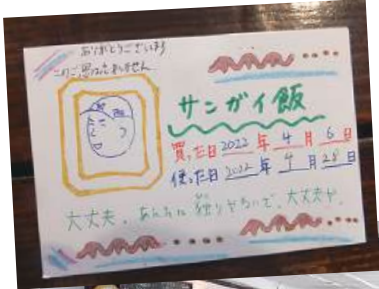 ありがとうございます
このご恩は忘れません
サンガイ飯
買った日 2022 年 4 月 6 日
使った日 2022 年 9 月 28 日
大丈夫、あんたは独りやないで、大丈夫や、